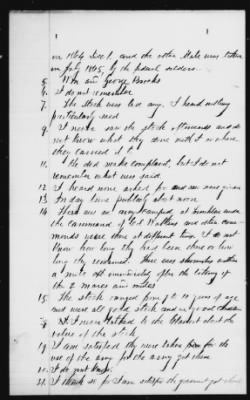 in 1864 Dec 1. and the other Mule was taken
in July 1865, by the federal soldiers.
5 Wm and George Brooks
6. I do not remember
7. The stock was led away. I heard nothing
particularly said
9. I never saw the stock afterwards and do
not know what they done with it or where
they carried it to
11. He did make complaint, but I do not
remember what was said.
12 I heard none asked for and given
13 In day time publicly about noon
14 There was an army encamped at
the command of Col and other
commands were there at different times. I do not
know how long they had been there or how
long they remained. There was skirmishes within
a mile off immediately after the taking of
the 2 mares and mules
15 The stock ranged from 8 to years of age
and were all good stock and in good condition
I never talked to the Claimant about the
value of the stock
19 I am satisfied they were taken for the
use of the army for the army got them.
20 I do not know.
21 I think so for I am satisfied the government got them